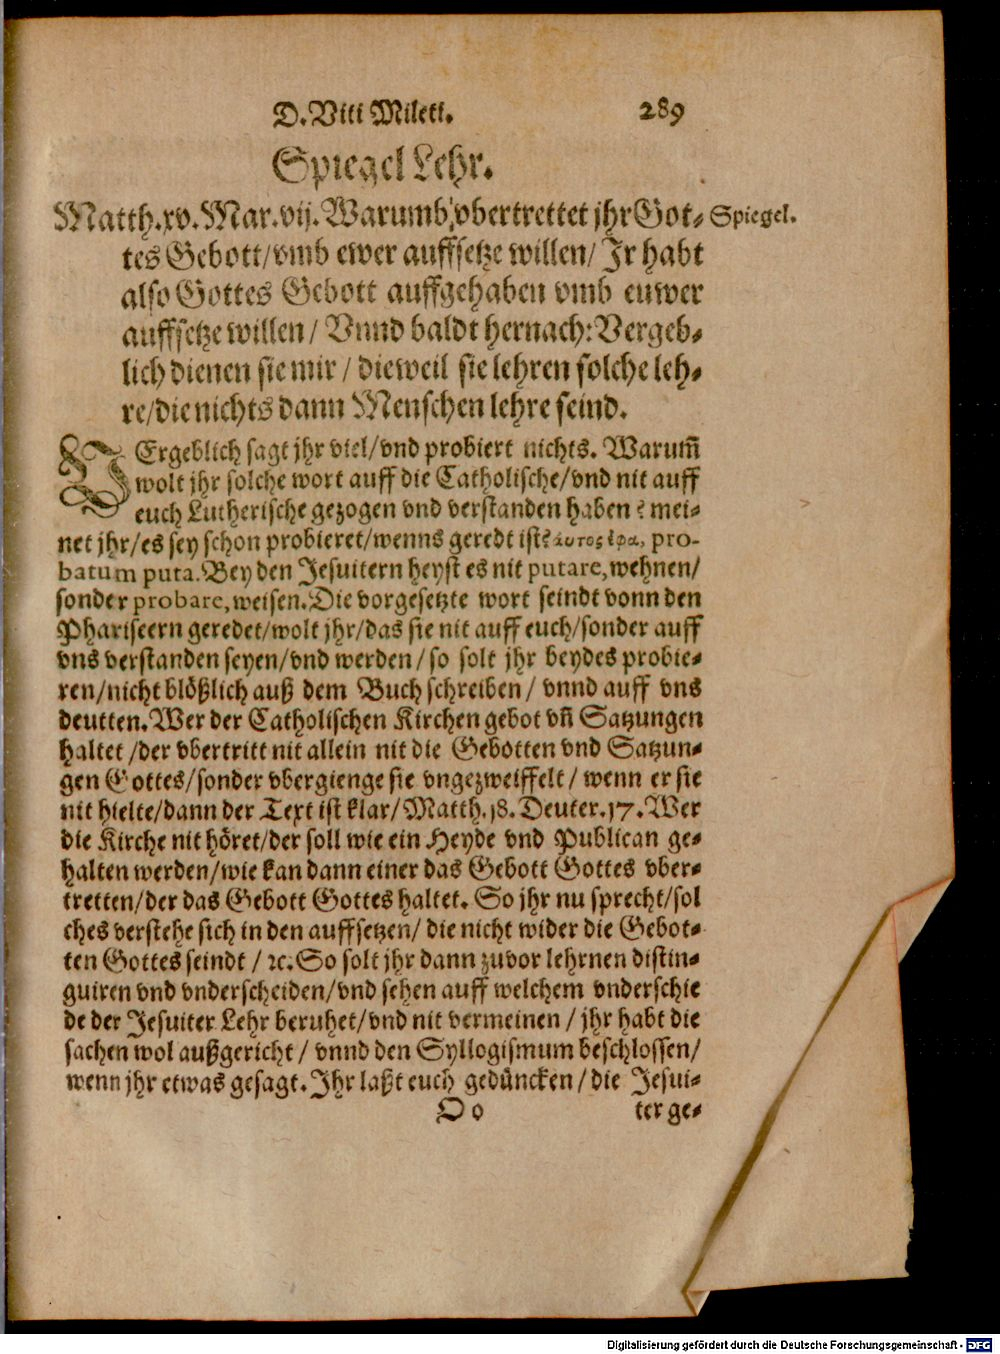 D. Viti Mileti. 289
Spiegel Lehr.
Matth.xv. Mar.vij. Warumb vbertrettet jhr Got- Spiegel.
tes Gebott/vmb ewer auffsetze willen/ Jr habt
also Gottes Gebott auffgehaben vmb euwer
auffsetze willen/ Vnnd baldt hernach: Vergeb-
lich dienen sie mir / dieweil sie lehren solche leh-
re/die nichts dann Menschen lehre seind.
VErgeblich sagt jhr viel/vnd probiert nichts. Warum̃
wolt jhr solche wort auff die Catholische/vnd nit auff
euch Lutherische gezogen vnd verstanden haben? mei-
net jhr/es sey schon probieret/wenns geredt ist? ἀυτος ἔφα, pro-
batum puta. Bey den Jesuitern heyst es nit putare, wehnen/
sonder probare, weisen. Die vorgesetzte wort seindt vonn den
Phariseern geredet/wolt jhr/das sie nit auff euch/sonder auff
vns verstanden seyen/vnd werden/ so solt jhr beydes probie-
ren/nicht blößlich auß dem Buch schreiben/ vnnd auff vns
deutten. Wer der Catholischen Kirchen gebot vn̄ Satzungen
haltet /der vbertritt nit allein nit die Gebotten vnd Satzun-
gen Gottes/sonder vbergienge sie vngezweiffelt/ wenn er sie
nit hielte/dann der Text ist klar/ Matth.18. Deuter.17. Wer
die Kirche nit höret/der soll wie ein Heyde vnd Publican ge-
halten werden/wie kan dann einer das Gebott Gottes vber-
tretten/der das Gebott Gottes haltet. So jhr nu sprecht/sol
ches verstehe sich in den auffsetzen/ die nicht wider die Gebot-
ten Gottes seindt / ꝛc. So solt jhr dann zuvor lehrnen distin-
guiren vnd vnderscheiden/vnd sehen auff welchem vnderschie
de der Jesuiter Lehr beruhet/vnd nit vermeinen / jhr habt die
sachen wol außgericht / vnnd den Syllogismum beschlossen/
wenn jhr etwas gesagt. Jhr laßt euch gedüncken / die Jesui-
Oo ter ge-
Digitalisierung gefördert durch die Deutsche Forschungsgemeinschaft - DFG